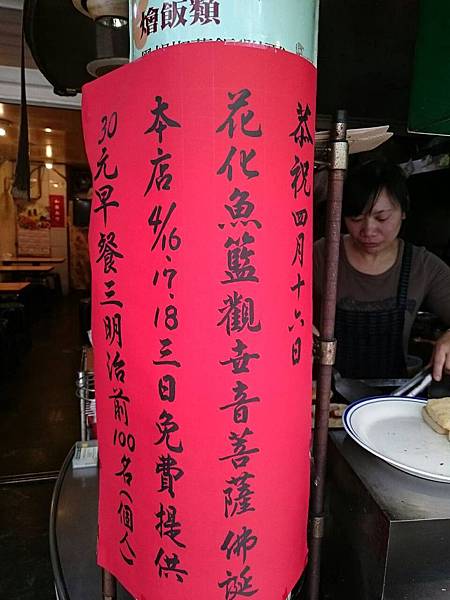 燴飯類
恭祝四月十六日
花化魚籃觀世音菩薩佛誕
本店4/16.17.18三日免費提供
30元早餐三明治前100名(個人)